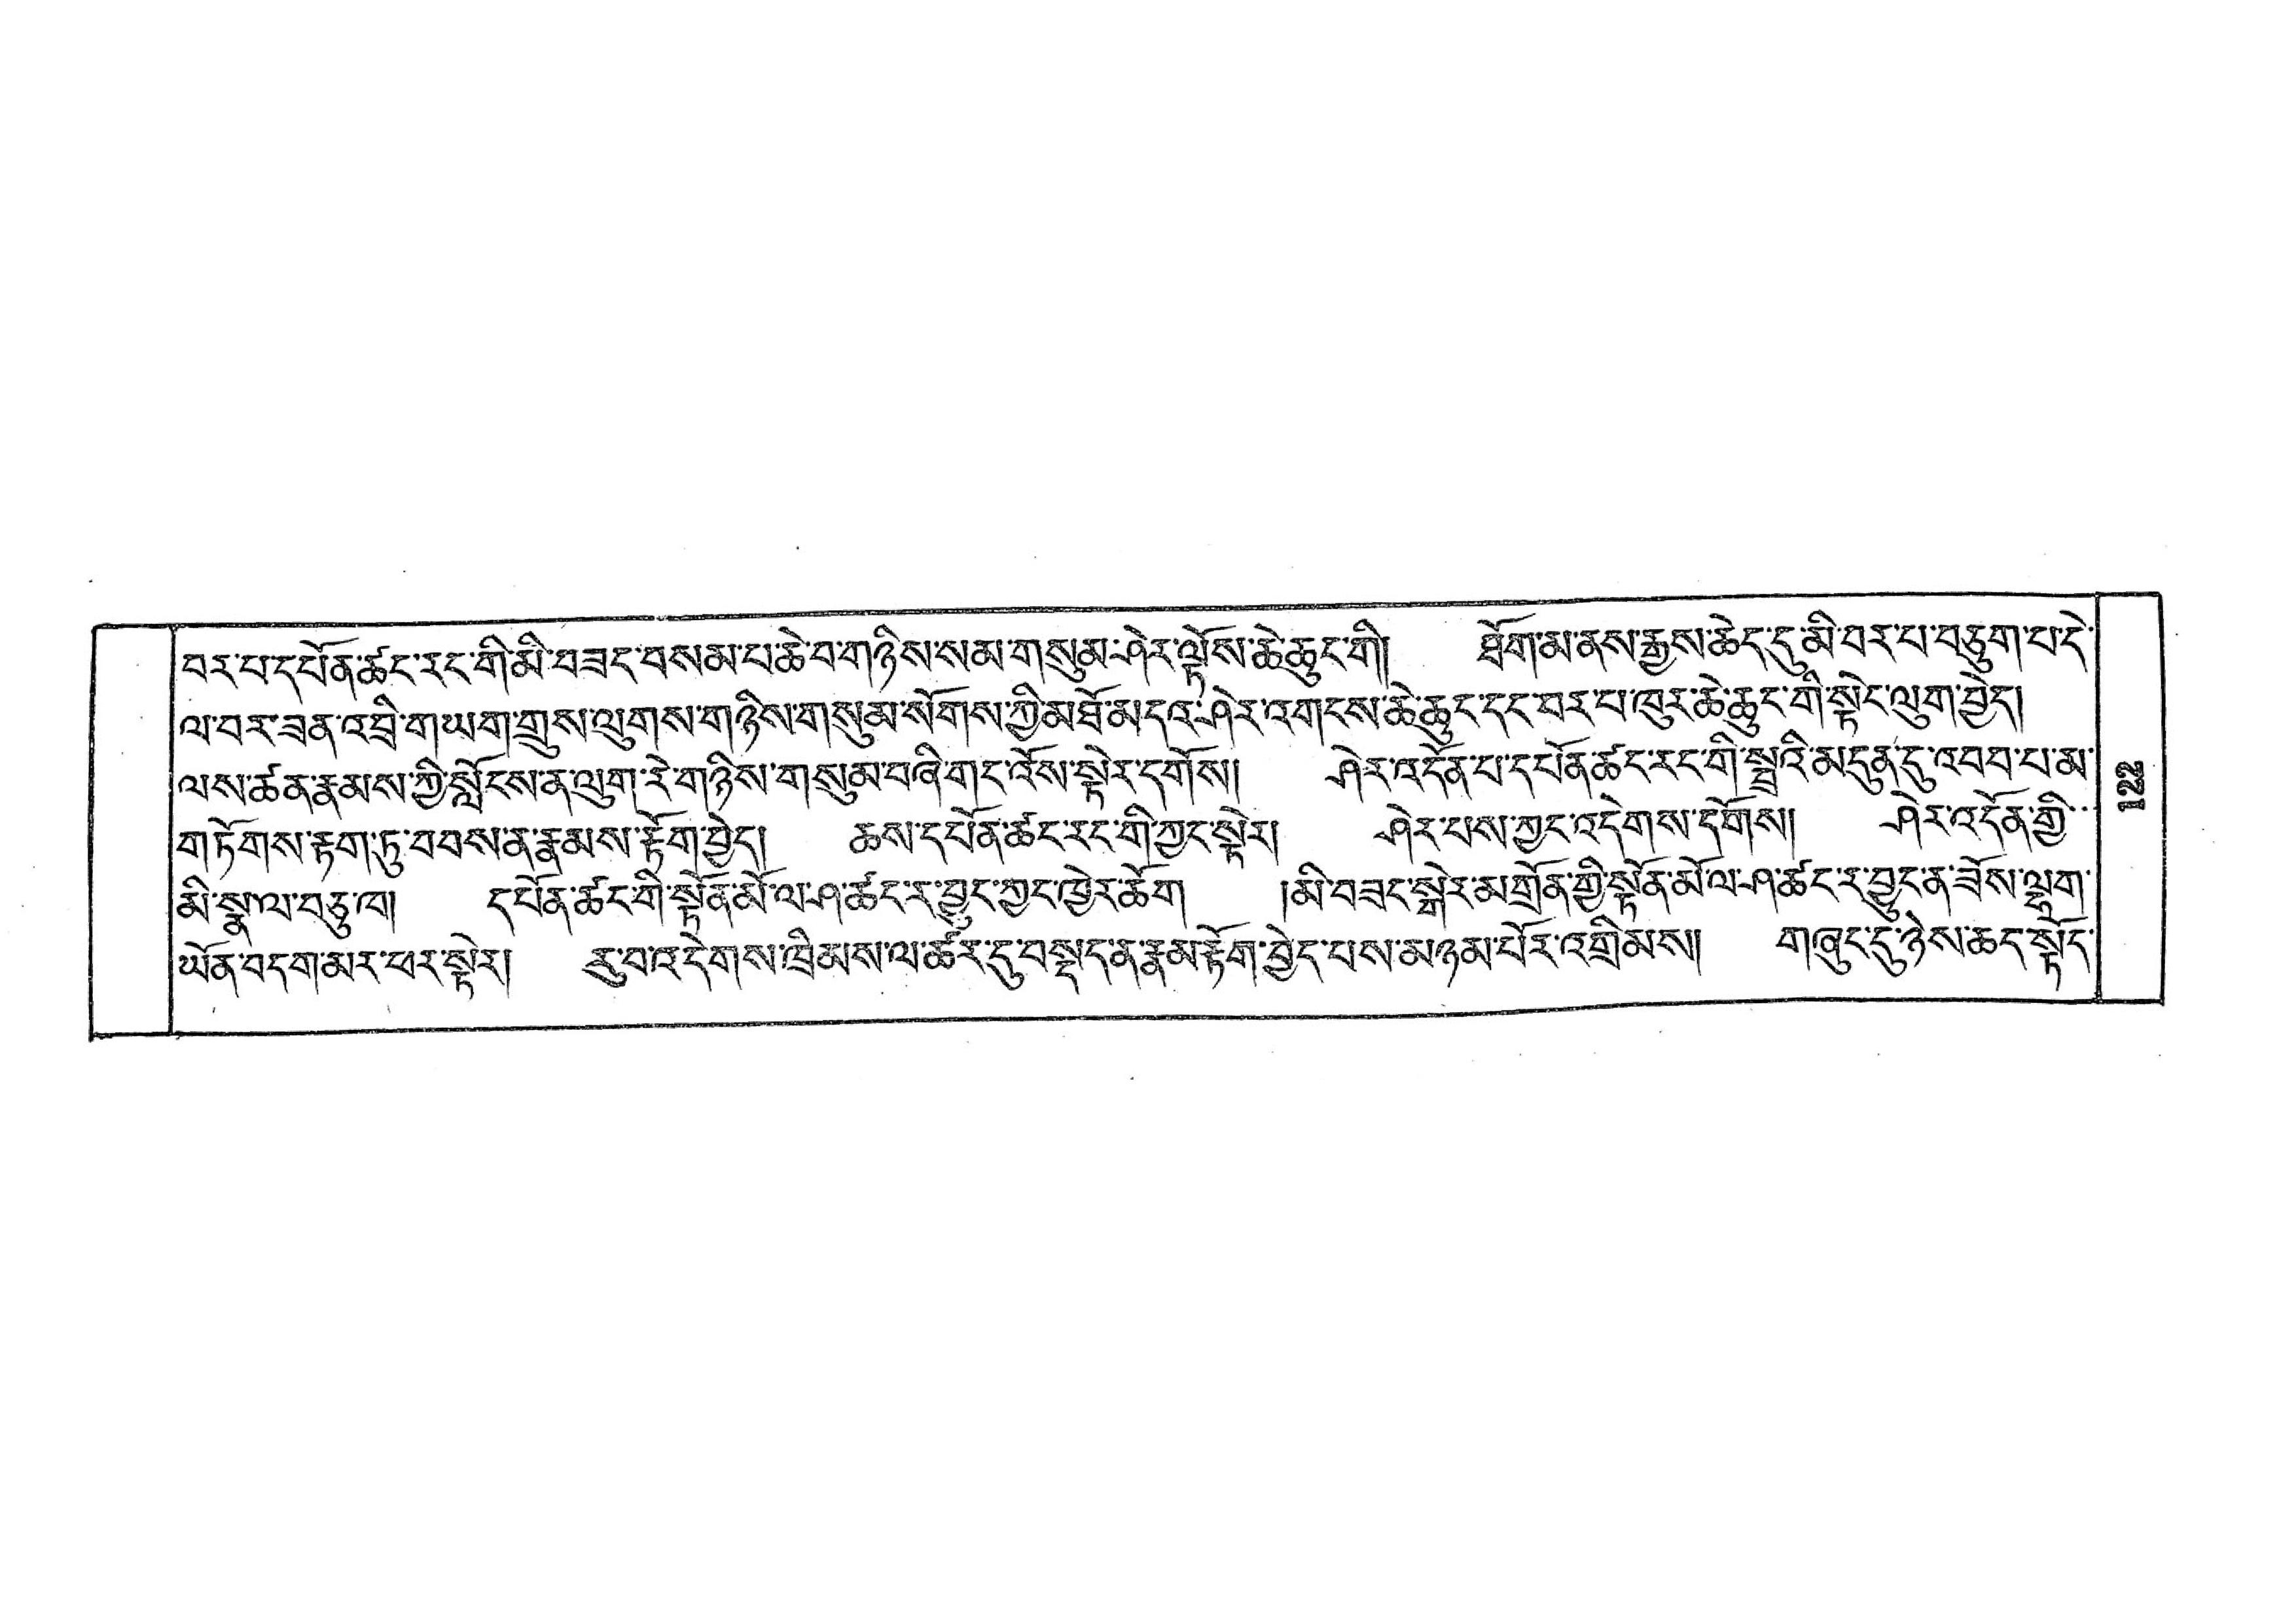 བར་པ་དཔོན་ཚང་རང་གི་མི་བཟད་བསམ་པ་ཆེ་བ་གཉིས་སམ་གསུམ་ཤེར་ལྟོས་ཆེ་ཆུང་གི། ཐོག་མ་ནས་རྒྱས་ཆེད་དུ་མི་བར་པ་བཅུག་པ་དེ་
ལ་བར་ཟན་འབྲི་གཡག་གྲུས་ལུགས་གཉིས་གསུམ་སོགས་ཀྱི་མཐོ་མདའ་ཤེར་འགངས་ཆེ་ཆུང་དང་བར་པ་ཁུར་ཆེ་ཆུང་གི་སྟེང་ལུག་བྱེད།
ལས་ཚན་རྣམས་ཀྱི་སློངས་ན་ལུག་རེ་གཉིས་གསུམ་བཞི་གང་འོས་སྟེར་དགོས། ཤེར་འདོན་པ་དཔོན་ཚང་རང་གི་སྦྲའི་མདུན་དུ་འབབ་པ་མ་
གཏོགས་རྟག་ཏུ་བབས་ན་རྣམས་རྟོག་བྱེད། ཆས་དཔོན་ཚང་རང་གི་ཀྱང་སྟེར། ཤེར་པས་ཀྱང་འདེགས་དགོས། ཤེར་འདོན་གྱི་
མི་སྣ་ལ་བཅུ་ཁ། དཔོན་ཚང་གི་སྟོན་མོ་ལ་ཤ་ཚང་ར་བྱུང་ཀྱང་ཁྱེར་ཆོག །མི་བཟང་སྒེར་མགྲོན་གྱི་སྟོན་མོ་ལ་ཤ་ཚང་ར་བྱུང་ན་ཟོས་ལྷག་
ཡོན་བདག་མར་ཕར་སྟེར། རུ་བ་འདེགས་ཁྲིམས་ལ་ཚར་དུ་བསྡད་ན་རྣམ་རྟོག་བྱེད་པས་མཉམ་པོར་འགྲིམས། གཞུང་དུ་ཉེས་ཆད་སྟོད་
122